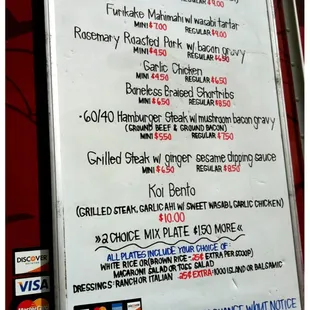 REGULAR $9.00
Furikake Mahimahi w/ wasabi tartar
MINI $7.00 REGULAR $9.00
Rosemary Roasted Pork w/ bacon gravy
MINI $4.50 REGULAR $6.50
Garlic Chicken
MINI $4.50 REGULAR $6.50
Boneless Braised Shortribs
MINI $6.50 REGULAR $8.50
-60/40 Hamburger Steak w/ mushroom bacon gravy
(GROUND BEEF & GROUND BACON)
MINI $5.50 REGULAR $7.50
Grilled Steak w/ ginger sesame dipping sauce
MINI $6.50 REGULAR $8.50
Koi Bento
(GRILLED STEAK, GARLIC AHI W/ SWEET WASABI, GARLIC CHICKEN)
$10.00
»2 CHOICE MIX PLATE $1.50 MORE«
ALL PLATES INCLUDE YOUR CHOICE OF:
WHITE RICE OR (BROWN RICE -25¢ EXTRA PER SCOOP)
MACARONI SALAD OR TOSS SALAD
DRESSINGS: RANCH OR ITALIAN -25¢ EXTRA- 1000 ISLAND OR BALSAMIC
W/OUT NOTICE
DISCOVER
VISA